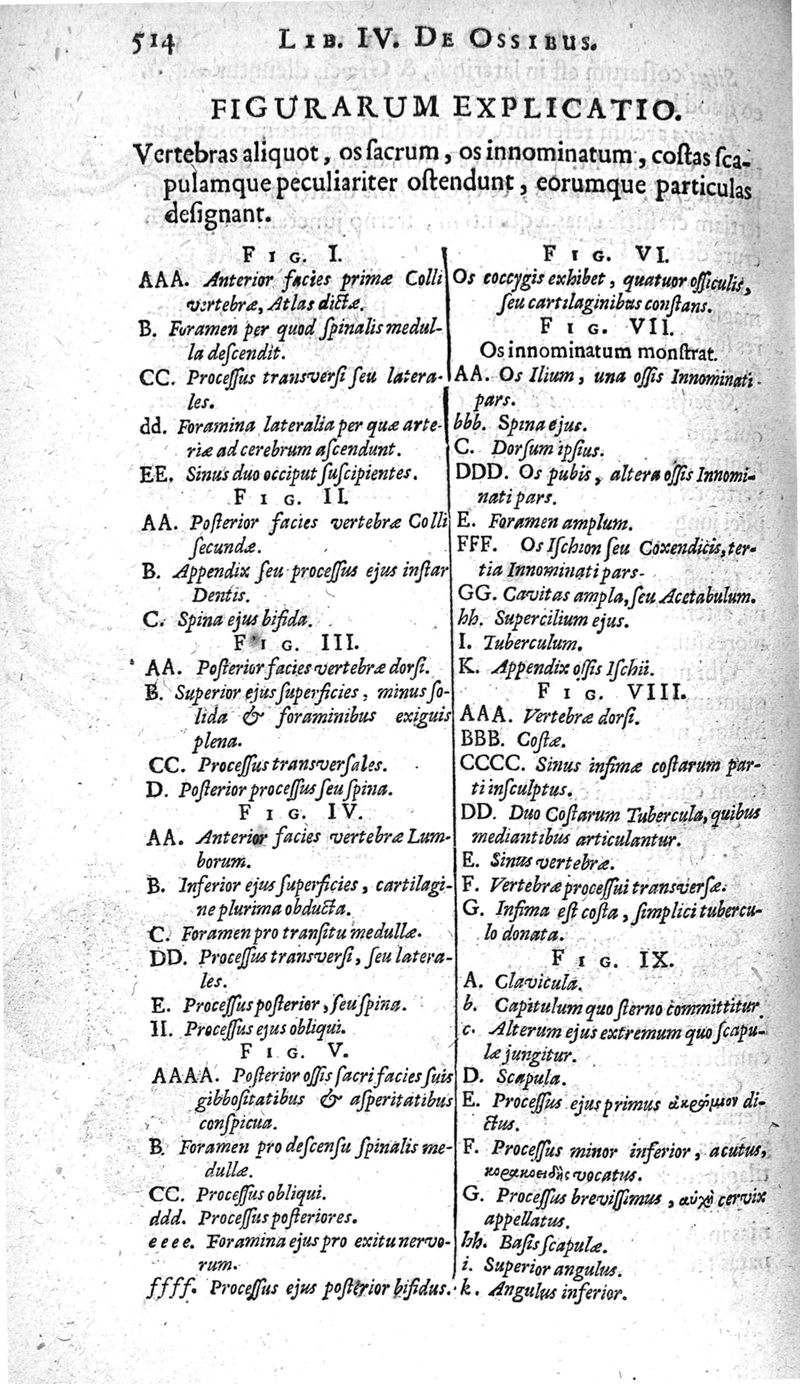 514 LIB. IV. DE OSSIBUS.
FIGURARUM EXPLICATIO.
Vertebras aliquot, os ſacrum, os innominatum, coſtas ſca-
pulamque peculiariter oſtendunt, eorumque particulas
deſignant.
FIG. I.
AAA. Anterior facies primæ Colli
vertebræ, Atlas dictæ.
B. Foramen per quod ſpinalis medul-
la deſcendit.
CC. Proceſſus transverſi ſeu latera-
les.
dd. Foramina lateralia per quæ arte-
riæ ad cerebrum aſcendunt.
EE. Sinus duo occiput ſuſcipientes.
FIG. II.
AA. Poſterior facies vertebræ Colli
ſecundæ.
B. Appendix ſeu proceſſus ejus inſtar
Dentis.
C. Spina ejus bifida.
FIG. III.
AA. Poſterior facies vertebræ dorſi.
B. Superior ejus ſuperficies, minus ſo-
lida & foraminibus exiguis
plena.
CC. Proceſſus transverſales.
D. Poſterior proceſſus ſeu ſpina.
FIG. IV.
AA. Anterior facies vertebræ Lum-
borum.
B. Inferior ejus ſuperficies, cartilagi-
ne plurima obducta.
C. Foramen pro tranſitu medullæ.
DD. Proceſſus transverſi, ſeu latera-
les.
E. Proceſſus poſterior, ſeu ſpina.
II. Proceſſus ejus obliqui.
FIG. V.
AAAA. Poſterior oſſis ſacri facies ſuis
gibboſitatibus & aſperitatibus
conſpicua.
B. Foramen pro deſcenſu ſpinalis me-
dullæ.
CC. Proceſſus obliqui.
ddd. Proceſſus poſteriores.
eeee. Foramina ejus pro exitu nervo-
rum.
ffff. Proceſſus ejus poſterior bifidus.
FIG. VI.
Os coccygis exhibet, quatuor oſſiculis,
ſeu cartilaginibus conſtans.
FIG. VII.
Os innominatum monſtrat.
AA. Os Ilium, una oſſis Innominati
pars.
bbb. Spina ejus.
C. Dorſum ipſius.
DDD. Os pubis, altera oſſis Innomi-
nati pars.
E. Foramen amplum.
FFF. Os Iſchion ſeu Coxendicis, ter-
tia Innominati pars.
GG. Cavitas ampla, ſeu Acetabulum.
hh. Supercilium ejus.
I. Tuberculum.
K. Appendix oſſis Iſchii.
FIG. VIII.
AAA. Vertebræ dorſi.
BBB. Coſtæ.
CCCC. Sinus infimæ coſtarum par-
ti inſculptus.
DD. Duo Coſtarum Tubercula, quibus
mediantibus articulantur.
E. Sinus vertebræ.
F. Vertebræ proceſſui transverſæ.
G. Infima eſt coſta, ſimplici tubercu-
lo donata.
FIG. IX.
A. Clavicula.
b. Capitulum quo ſterno committitur
c. Alterum ejus extremum quo ſcapu-
læ jungitur.
D. Scapula.
E. Proceſſus ejus primus ἀκρώμιον di-
ctus.
F. Proceſſus minor inferior, acutus,
κορακοειδὴς vocatus.
G. Proceſſus breviſſimus, αὐχὴ cervix
appellatus.
hh. Baſis ſcapulæ.
i. Superior angulus.
k. Angulus inferior.